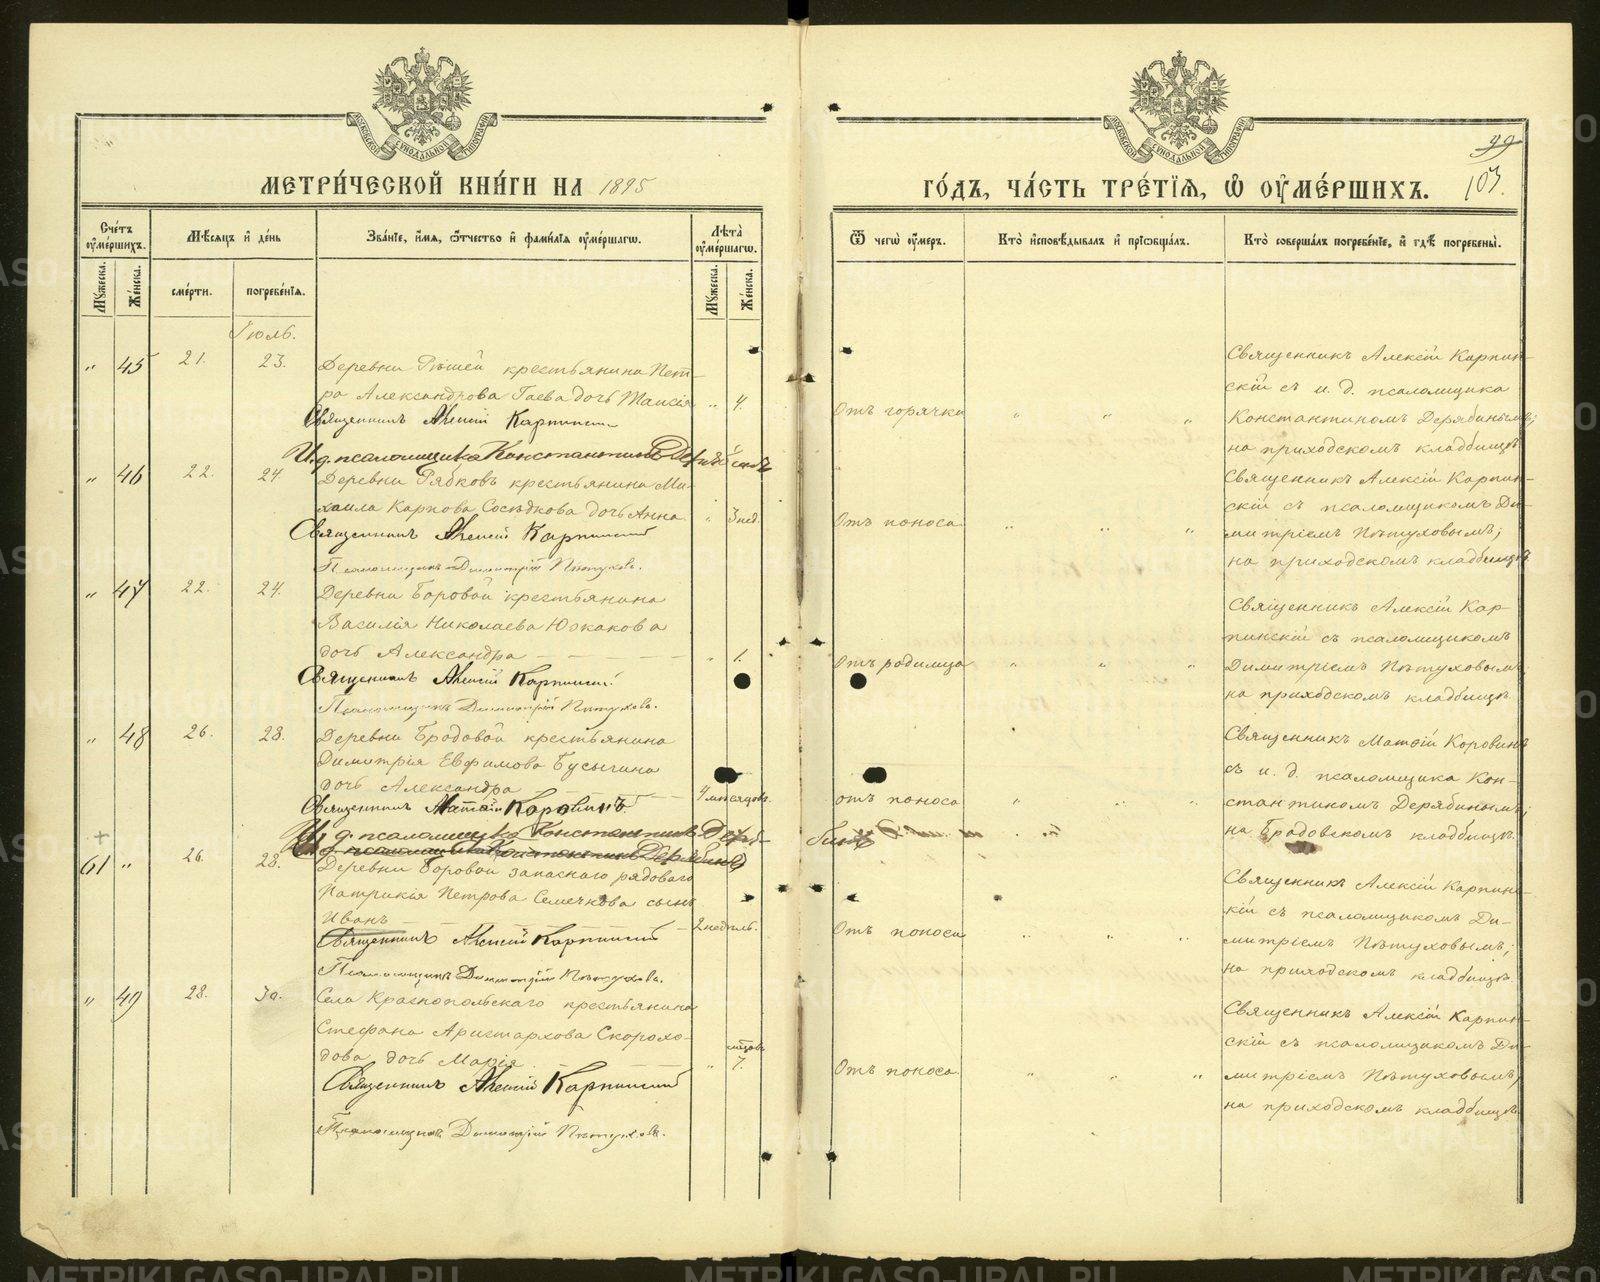 МЕТРИ́ЧЕСКОЙ КНИ́ГИ НА 1895
ГО́ДЪ, ЧА́СТЬ ТРЕ́ТІѦ, Ѽ ОУ҆МЕ́РШИХЪ.
99
103.
Сче́тъ оу҆ме́ршихъ.
Мꙋжеска.
Же́нска.
Мѣ́сѧцъ и҆ де́нь
сме́рти.
погребе́нїѧ.
Зва́нїе, и҆́мѧ, ѻ҆́тчество и҆ фами́лїѧ оу҆ме́ршагѡ.
Лѣ́та оу҆ме́ршагѡ.
Мꙋжеска.
Же́нска.
Ѿ чегѡ̀ оу҆́меръ.
Кто̀ и҆сповѣ́дывалъ и҆ прїѡбща́лъ.
Кто̀ соверша́лъ погребе́нїе, и҆ гдѣ̀ погребены̀.
Іюль.
" 45 21. 23.
Деревни Рѣшей крестьянина Пет-
ра Александрова Гаева дочь Таисія " 4.
Отъ горячки " " "
Священникъ Алексій Карпинскій
И. д. псаломщика Константинъ Дерябинъ
Священникъ Алексій Карпин-
скій съ и. д. псаломщика
Константиномъ Дерябинымъ;
на приходскомъ кладбищѣ
" 46 22. 24.
Деревни Рябковъ крестьянина Ми-
хаила Карпова Сосѣдкова дочь Анна " 3 нед.
Отъ поноса " " "
Священникъ Алексій Карпинскій
Псаломщикъ Димитрій Пѣтуховъ.
Священникъ Алексій Карпин-
скій съ псаломщикомъ Ди-
митріемъ Пѣтуховымъ;
на приходскомъ кладбищѣ
" 47 22. 24.
Деревни Боровой крестьянина
Василія Николаева Южакова
дочь Александра " 1.
Отъ родимца " " "
Священникъ Алексій Карпинскій
Псаломщикъ Димитрій Пѣтуховъ.
Священникъ Алексій Кар-
пинскій съ псаломщикомъ
Димитріемъ Пѣтуховымъ
на приходскомъ кладбищѣ
" 48 26. 28.
Деревни Бродовой крестьянина
Димитрія Евфимова Бусыгина
дочь Александра 4 мѣсяцовъ
отъ поноса " " "
Священникъ Матѳій Коровинъ
И. д. псаломщика Константинъ Деряб-
бинъ
И. д. псаломщика Константинъ Дерябинъ
Священникъ Матѳій Коровинъ
съ и. д. псаломщика Кон-
стантиномъ Дерябинымъ;
на Бродовскомъ кладбищѣ
+
61 " 26. 28.
Деревни Боровой запаснаго рядоваго
Патрикія Петрова Семечкова сынъ
Иванъ 2 недѣль.
Отъ поноса " " "
Священникъ Алексій Карпинскій
Псаломщикъ Димитрій Пѣтуховъ.
Священникъ Алексій Карпин-
кій съ псаломщикомъ Ди-
митріемъ Пѣтуховымъ;
на приходскомъ кладбищѣ.
" 49 28. 30.
Села Краснопольскаго крестьянина
Стефана Аристархова Скорохо-
дова дочь Марія " мѣсяцовъ 7.
Отъ поноса. " " "
Священникъ Алексій Карпинскій
Псаломщикъ Димитрій Пѣтуховъ.
Священникъ Алексій Карпин-
скій съ псаломщикомъ Ди-
митріемъ Пѣтуховымъ;
на приходскомъ кладбищѣ
METRIKI.GASO-URAL.RU